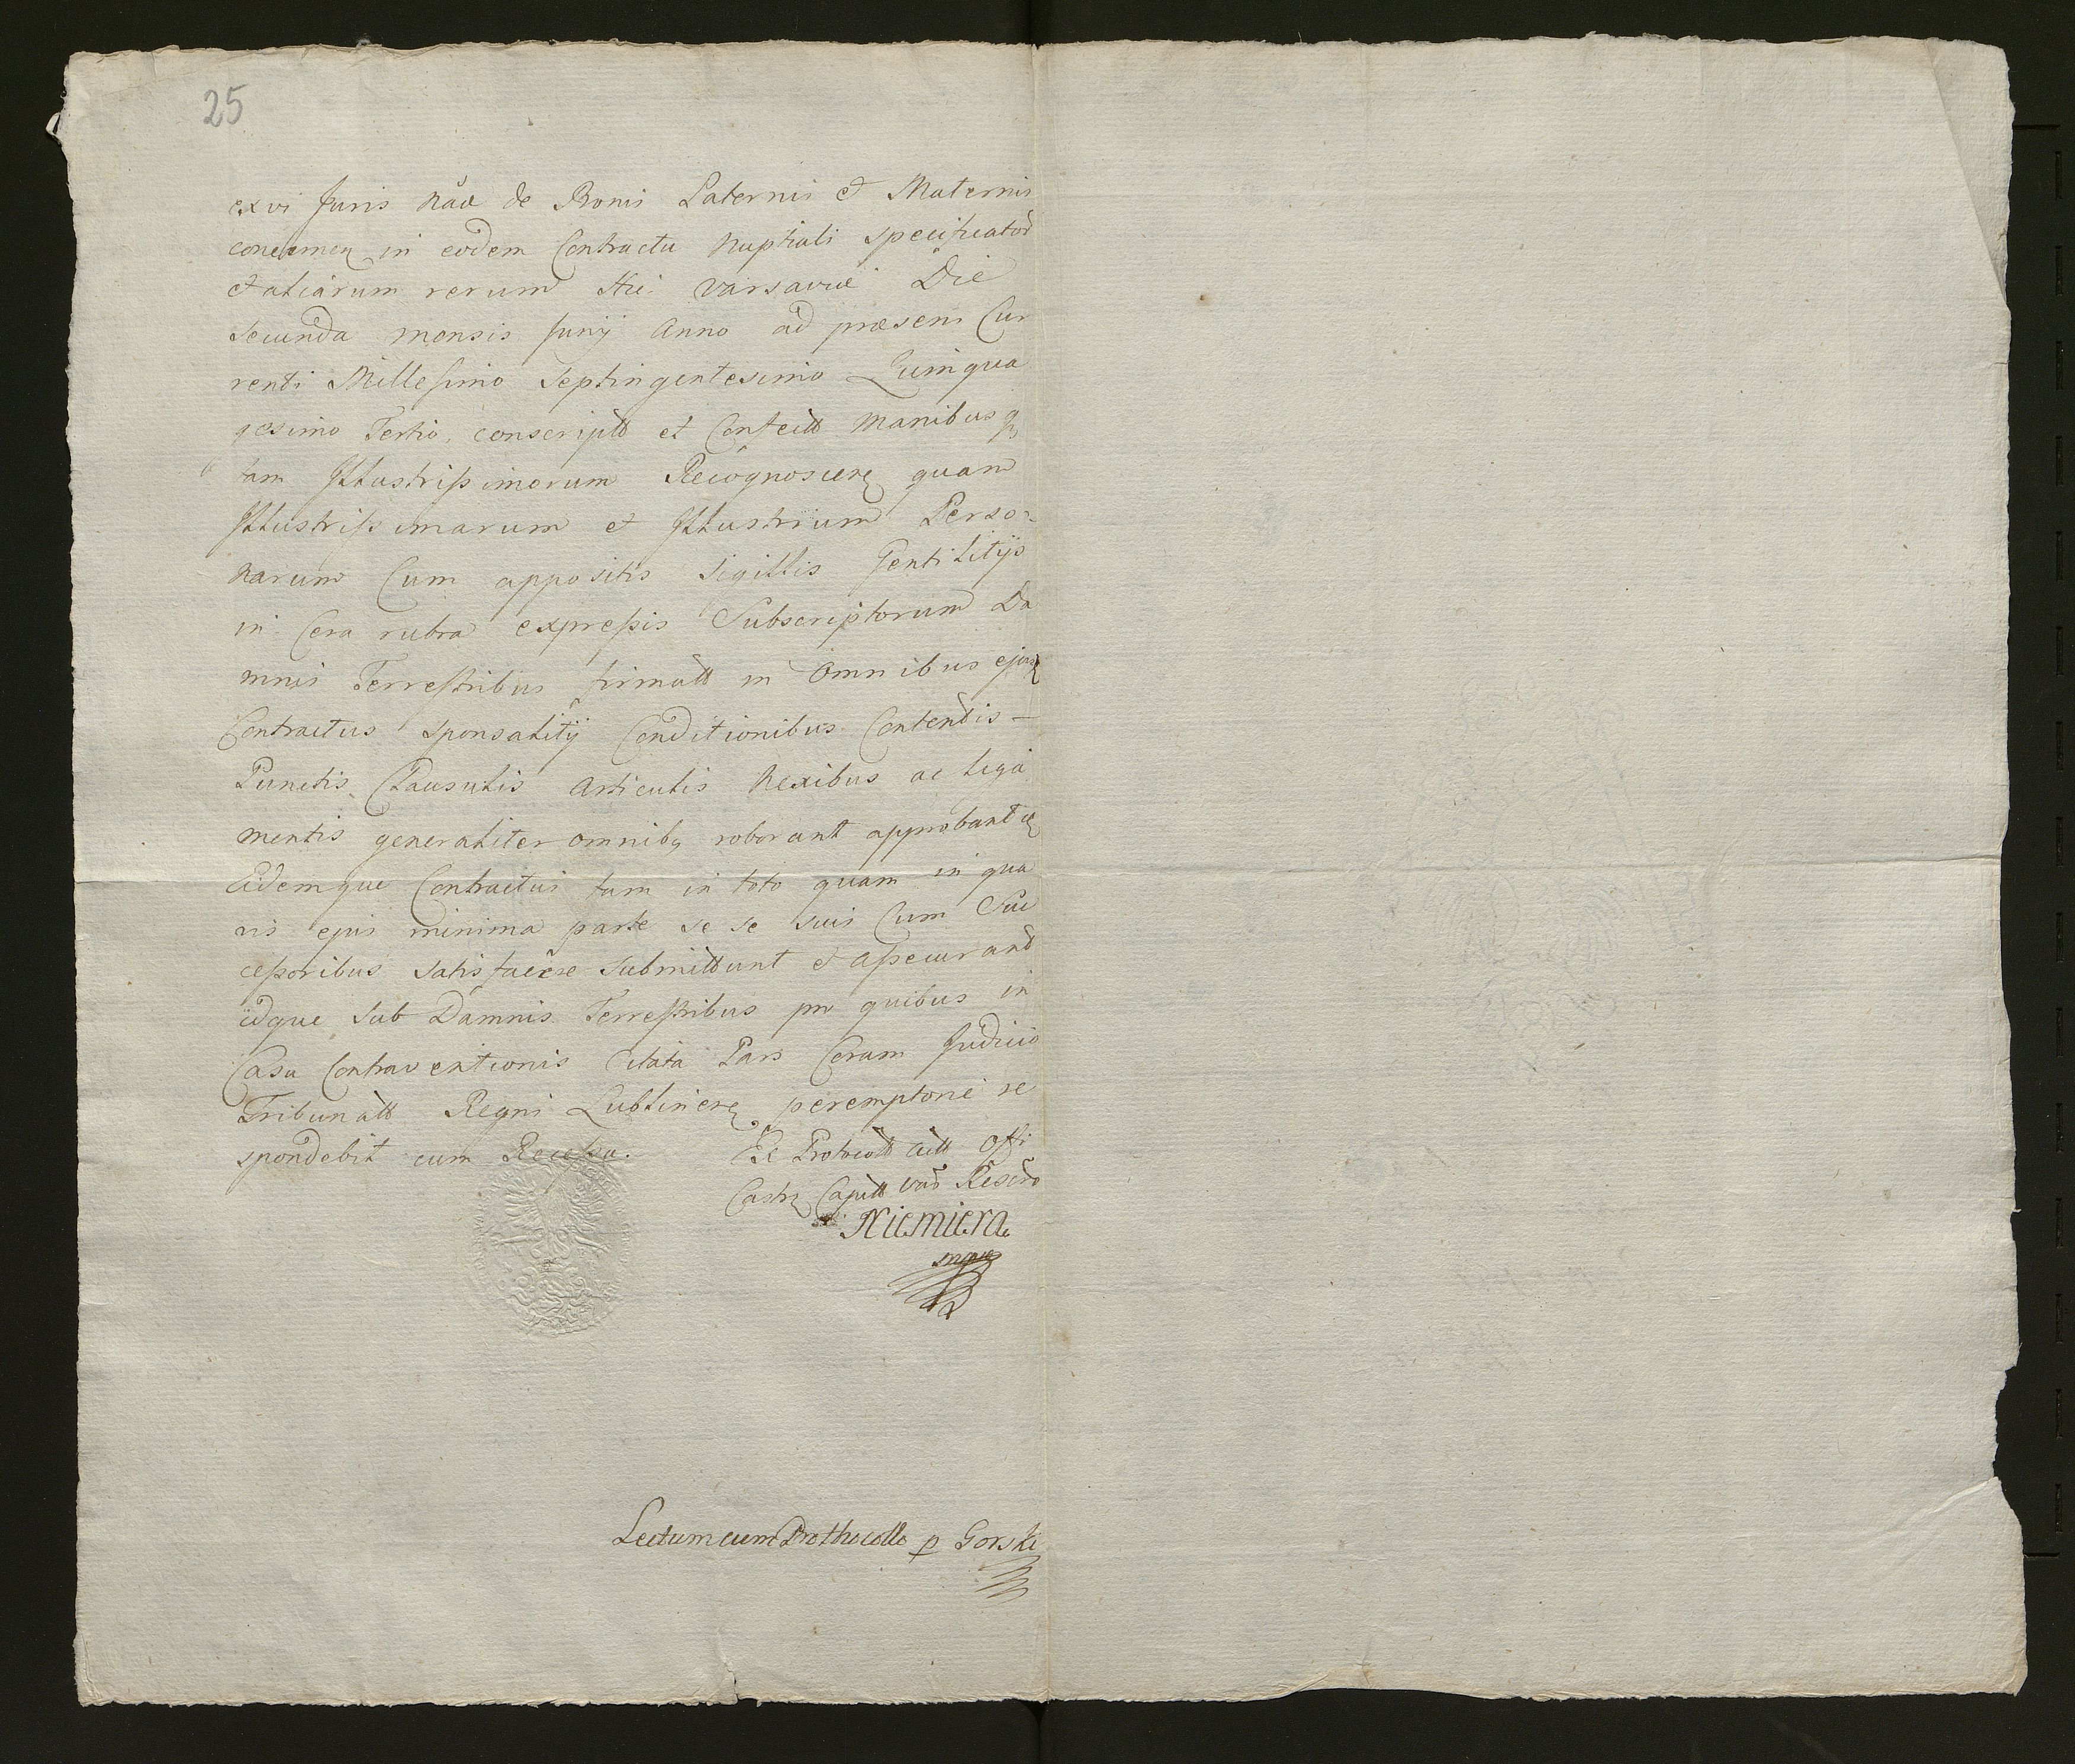 25
ex vi Juris nãæ de Bonis Paternis et Maternis
concernen in eodem Contractu Nuptiali specificator
et aliarum rerum Hic Varsaviæ Die
Secunda mensis Junij Anno ad præsens Cur
renti Millesimo Septingentesimo Quinqua
gesimo Tertio, conscript et Confect Manibus q
tam Illustrissimorum Recognoscen quam
Illustrissimarum et Illustrium Perso-
narum Cum appositis Sigillis Gentilitijs
in Cera rubra expressis Subscriptorum Da
mnis Terrestribus firmatt in Omnibus ejus
Contractus Sponsalitij Conditionibus Contentis
Punctis Clausulis Articulis Nexibus ac Liga
mentis generaliter omnibq roborant approbant
Eidemque Contractui tam in toto quam in qua
vis ejus minima parte se se suis Cum Suc
cessoribus Satisfacere Submittunt et assecurant
idque Sub Damnis Terrestribus pro quibus in
Casu Contraventionis Citata Pars Coram Judicio
Tribunatt Regni Lublinen peremptorie re
spondebit cum Recessu.
Ex Protocott Actt Offi
Castr Capitt Vars
Niemiera
mpp
Lectum cum Prothocollo p Gorski